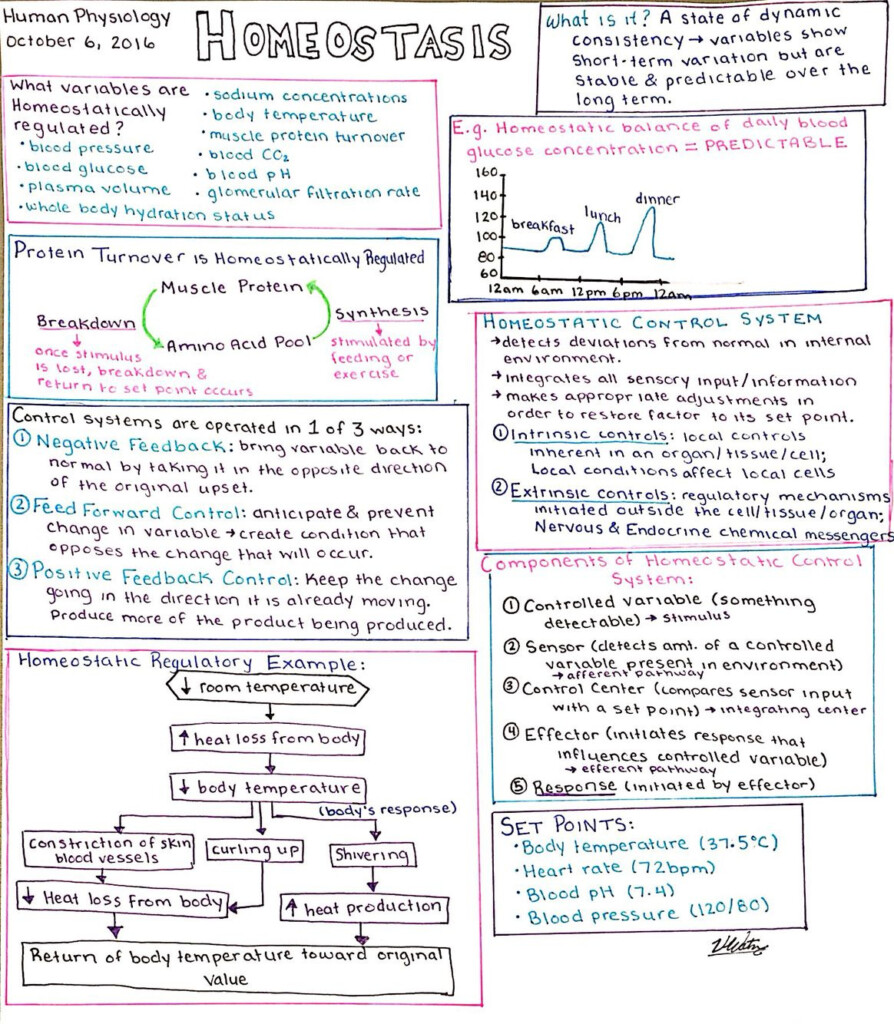 Human Physiology
October 6, 2016
HOMEOSTASIS
What is it? A state of dynamic
consistency → variables show
short-term variation but are
stable & predictable over the
long term.
What variables are
Homeostatically
regulated?
• blood pressure
• blood glucose
• plasma volume
• whole body hydration status
• sodium concentrations
• body temperature
• muscle protein turnover
• blood CO₂
• blood pH
• glomerular filtration rate
E.g. Homeostatic balance of daily blood
glucose concentration = PREDICTABLE
160
140
120
100
80
60
breakfast
lunch
dinner
12am 6am 12pm 6pm 12am
Protein Turnover is Homeostatically Regulated
Muscle Protein
Breakdown
Synthesis
Amino Acid Pool
once stimulus
is lost, breakdown &
return to set point occurs
stimulated by
feeding or
exercise
HOMEOSTATIC CONTROL SYSTEM
→ detects deviations from normal in internal
environment.
→ integrates all sensory input/information
→ makes appropriate adjustments in
order to restore factor to its set point.
① Intrinsic controls: local controls
inherent in an organ/tissue/cell;
Local conditions affect local cells
② Extrinsic controls: regulatory mechanisms
initiated outside the cell/tissue/organ;
Nervous & Endocrine chemical messengers
Control systems are operated in 1 of 3 ways:
① Negative Feedback: bring variable back to
normal by taking it in the opposite direction
of the original upset.
② Feed Forward Control: anticipate & prevent
change in variable → create condition that
opposes the change that will occur.
③ Positive Feedback Control: Keep the change
going in the direction it is already moving.
Produce more of the product being produced.
Components of Homeostatic Control
System:
① Controlled variable (something
detectable) → stimulus
② Sensor (detects amt. of a controlled
variable present in environment)
→ afferent pathway
③ Control Center (compares sensor input
with a set point) → integrating center
④ Effector (initiates response that
influences controlled variable)
→ efferent pathway
⑤ Response (initiated by effector)
Homeostatic Regulatory Example:
↓ room temperature
↑ heat loss from body
↓ body temperature
(body's response)
Constriction of skin
blood vessels
curling up
Shivering
↓ Heat loss from body
↑ heat production
Return of body temperature toward original
value
SET POINTS:
• Body temperature (37.5°C)
• Heart rate (72bpm)
• Blood pH (7.4)
• Blood pressure (120/80)